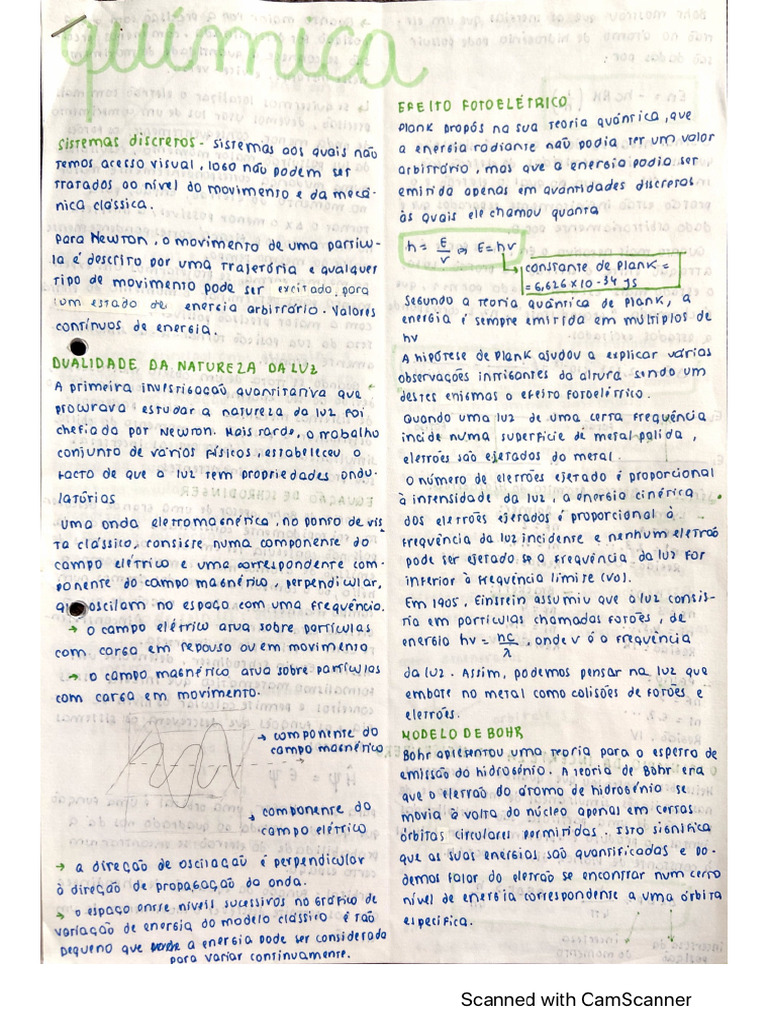 química
Sistemas discretos - sistemas aos quais não
temos acesso visual, logo não podem ser
tratados ao nível do movimento e da mecâ-
nica clássica.
Para Newton, o movimento de uma partícu-
la é descrito por uma trajetória e qualquer
tipo de movimento pode ser excitado, para
um estado de energia arbitrário. Valores
contínuos de energia.
DUALIDADE DA NATUREZA DA LUZ
A primeira investigação quantitativa que
procurava estudar a natureza da luz foi
chefiada por Newton. Mais tarde, o trabalho
conjunto de vários físicos, estabeleceu o
facto de que a luz tem propriedades ondu-
latórias
Uma onda eletromagnética, no ponto de vis-
ta clássico, consiste numa componente do
campo elétrico e uma correspondente com-
ponente do campo magnético, perpendicular,
oscilam no espaço com uma frequência.
→ o campo elétrico atua sobre partículas
com carga em repouso ou em movimento
→ o campo magnético atua sobre partículas
com carga em movimento.
→ componente do
campo magnético
→ componente do
campo elétrico
→ a direção de oscilação é perpendicular
à direção de propagação da onda.
→ o espaço entre níveis sucessivos no gráfico de
variação de energia do modelo clássico é tão
pequeno que a energia pode ser considerada
para variar continuamente.
EFEITO FOTOELÉTRICO
Plank propôs na sua teoria quântica, que
a energia radiante não podia ter um valor
arbitrário, mas que a energia podia ser
emitida apenas em quantidades discretas
às quais ele chamou quanta
h = E/v ⇒ E = hv
constante de Plank =
= 6,626 × 10 -34 Js
Segundo a teoria quântica de Plank, a
energia é sempre emitida em múltiplos de
hv
A hipótese de Plank ajudou a explicar várias
observações intrigantes da altura sendo um
destes enigmas o efeito fotoelétrico.
Quando uma luz de uma certa frequência
incide numa superfície de metal polida,
eletrões são ejetados do metal.
O número de eletrões ejetado é proporcional
à intensidade da luz, a energia cinética
dos eletrões ejetados é proporcional à
frequência da luz incidente e nenhum eletrão
pode ser ejetado se a frequência da luz for
inferior à frequência limite (vo).
Em 1905, Einstein assumiu que a luz consis-
tia em partículas chamadas fotões, de
energia hv = hc/λ, onde v é a frequência
da luz. Assim, podemos pensar na luz que
embate no metal como colisões de fotões e
eletrões.
MODELO DE BOHR
Bohr apresentou uma teoria para o espetro de
emissão do hidrogénio. A teoria de Bohr era
que o eletrão do átomo de hidrogénio se
movia à volta do núcleo apenas em certas
órbitas circulares permitidas. Isto significa
que as suas energias são quantificadas e po-
demos falar do eletrão se encontrar num certo
nível de energia correspondente a uma órbita
específica.
Scanned with CamScanner